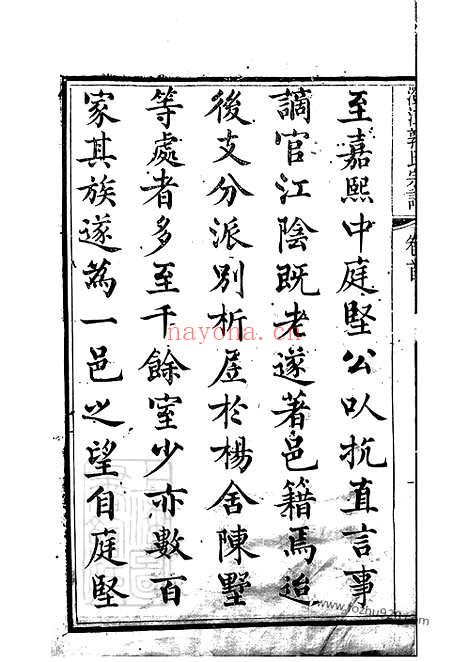 至嘉熙中庭堅公以抗直言事
謫官江陰既老遂著邑籍焉迨
後支分派別析居於楊舍陳墅
等處者多至千餘室少亦數百
家其族遂為一邑之望自庭堅
卷首
nayona.cn
www.fozhu920.com